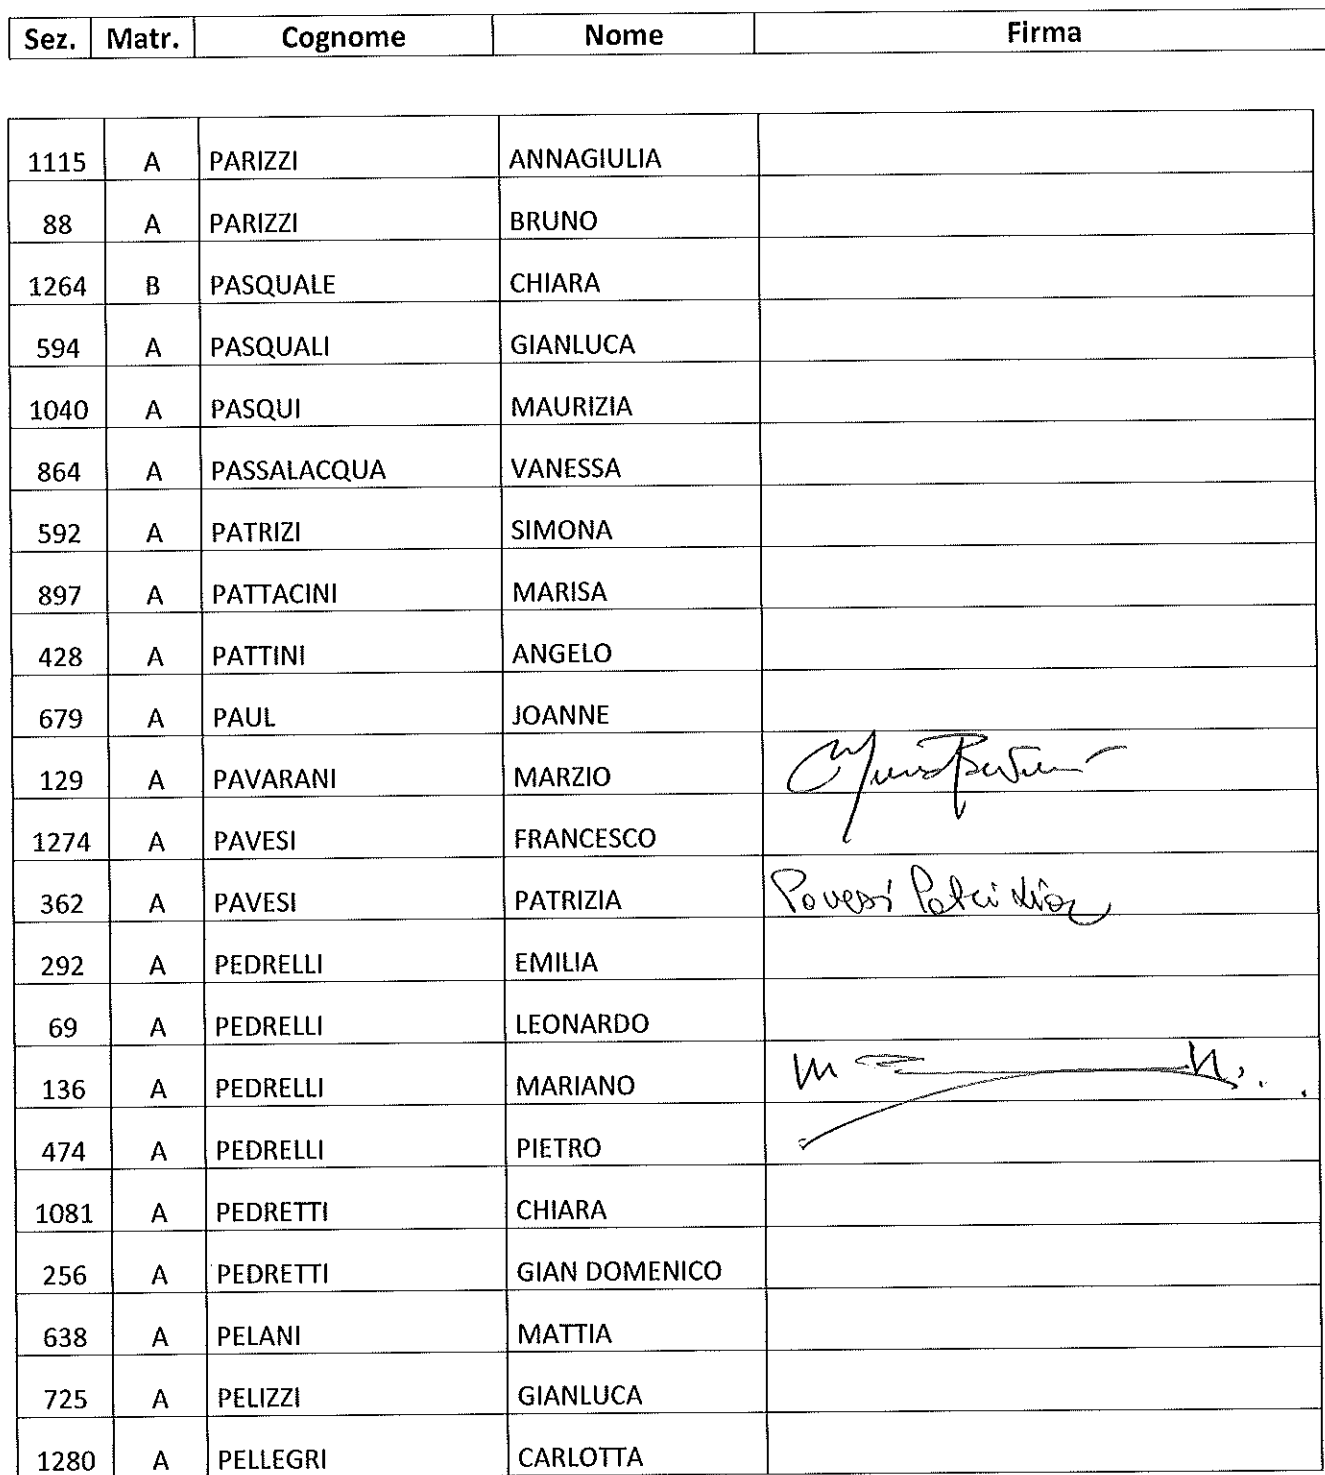 Sez. Matr. Cognome Nome Firma
1115 A PARIZZI ANNAGIULIA
88 A PARIZZI BRUNO
1264 B PASQUALE CHIARA
594 A PASQUALI GIANLUCA
1040 A PASQUI MAURIZIA
864 A PASSALACQUA VANESSA
592 A PATRIZI SIMONA
897 A PATTACINI MARISA
428 A PATTINI ANGELO
679 A PAUL JOANNE
129 A PAVARANI MARZIO
1274 A PAVESI FRANCESCO
362 A PAVESI PATRIZIA Pavesi Patrizia
292 A PEDRELLI EMILIA
69 A PEDRELLI LEONARDO
136 A PEDRELLI MARIANO
474 A PEDRELLI PIETRO
1081 A PEDRETTI CHIARA
256 A PEDRETTI GIAN DOMENICO
638 A PELANI MATTIA
725 A PELIZZI GIANLUCA
1280 A PELLEGRI CARLOTTA